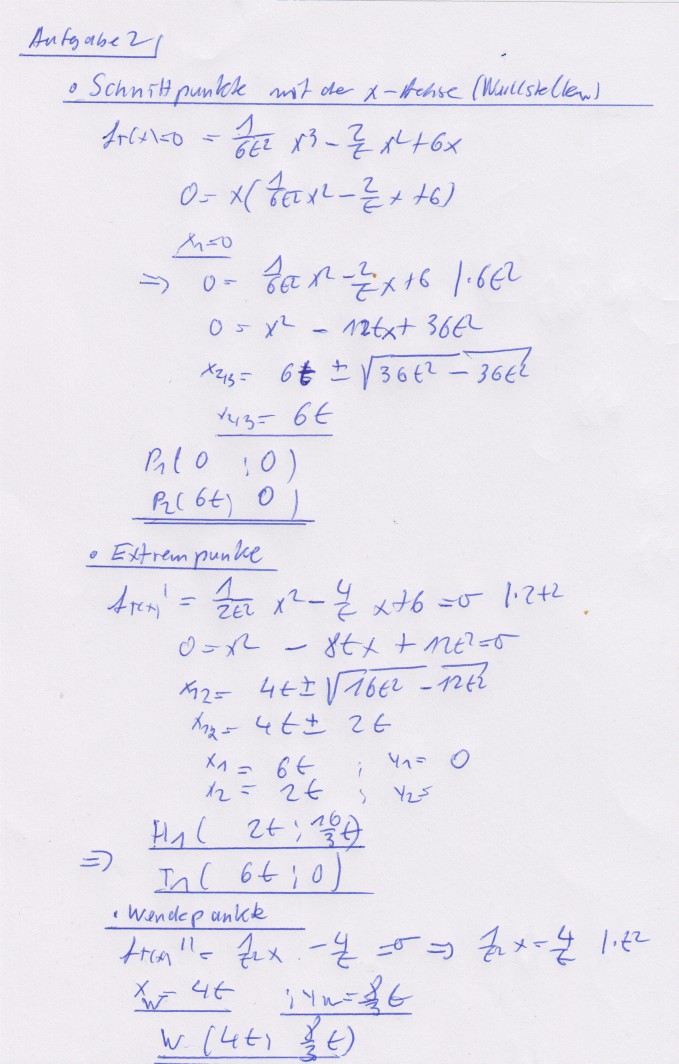 Aufgabe 2)
• Schnittpunkte mit der x-Achse (Nullstellen)
f_t(x)=0 = \frac{1}{6t²} x³ - \frac{2}{t} x² + 6x
0 = x( \frac{1}{6t²} x² - \frac{2}{t} x + 6)
x₁=0
⇒ 0 = \frac{1}{6t²} x² - \frac{2}{t} x + 6 | · 6t²
0 = x² - 12tx + 36t²
x₂,₃ = 6t ± √(36t² - 36t²)
x₂,₃ = 6t
P₁( 0 ; 0 )
P₂( 6t; 0 )
• Extrempunke
f_t(x)' = \frac{1}{2t²} x² - \frac{4}{t} x + 6 = 0 | · 2t²
0 = x² - 8tx + 12t² = 0
x₁,₂ = 4t ± √(16t² - 12t²)
x₁,₂ = 4t ± 2t
x₁ = 6t ; y₁ = 0
x₂ = 2t ; y₂ =
H₁( 2t ; \frac{16}{3} t)
⇒ T₁( 6t ; 0 )
• Wendepunkte
f_t(x)'' = \frac{1}{t²} x - \frac{4}{t} = 0 ⇒ \frac{1}{t²} x = \frac{4}{t} | · t²
x_w = 4t ; y_w = \frac{8}{3} t
W (4t; \frac{8}{3} t)